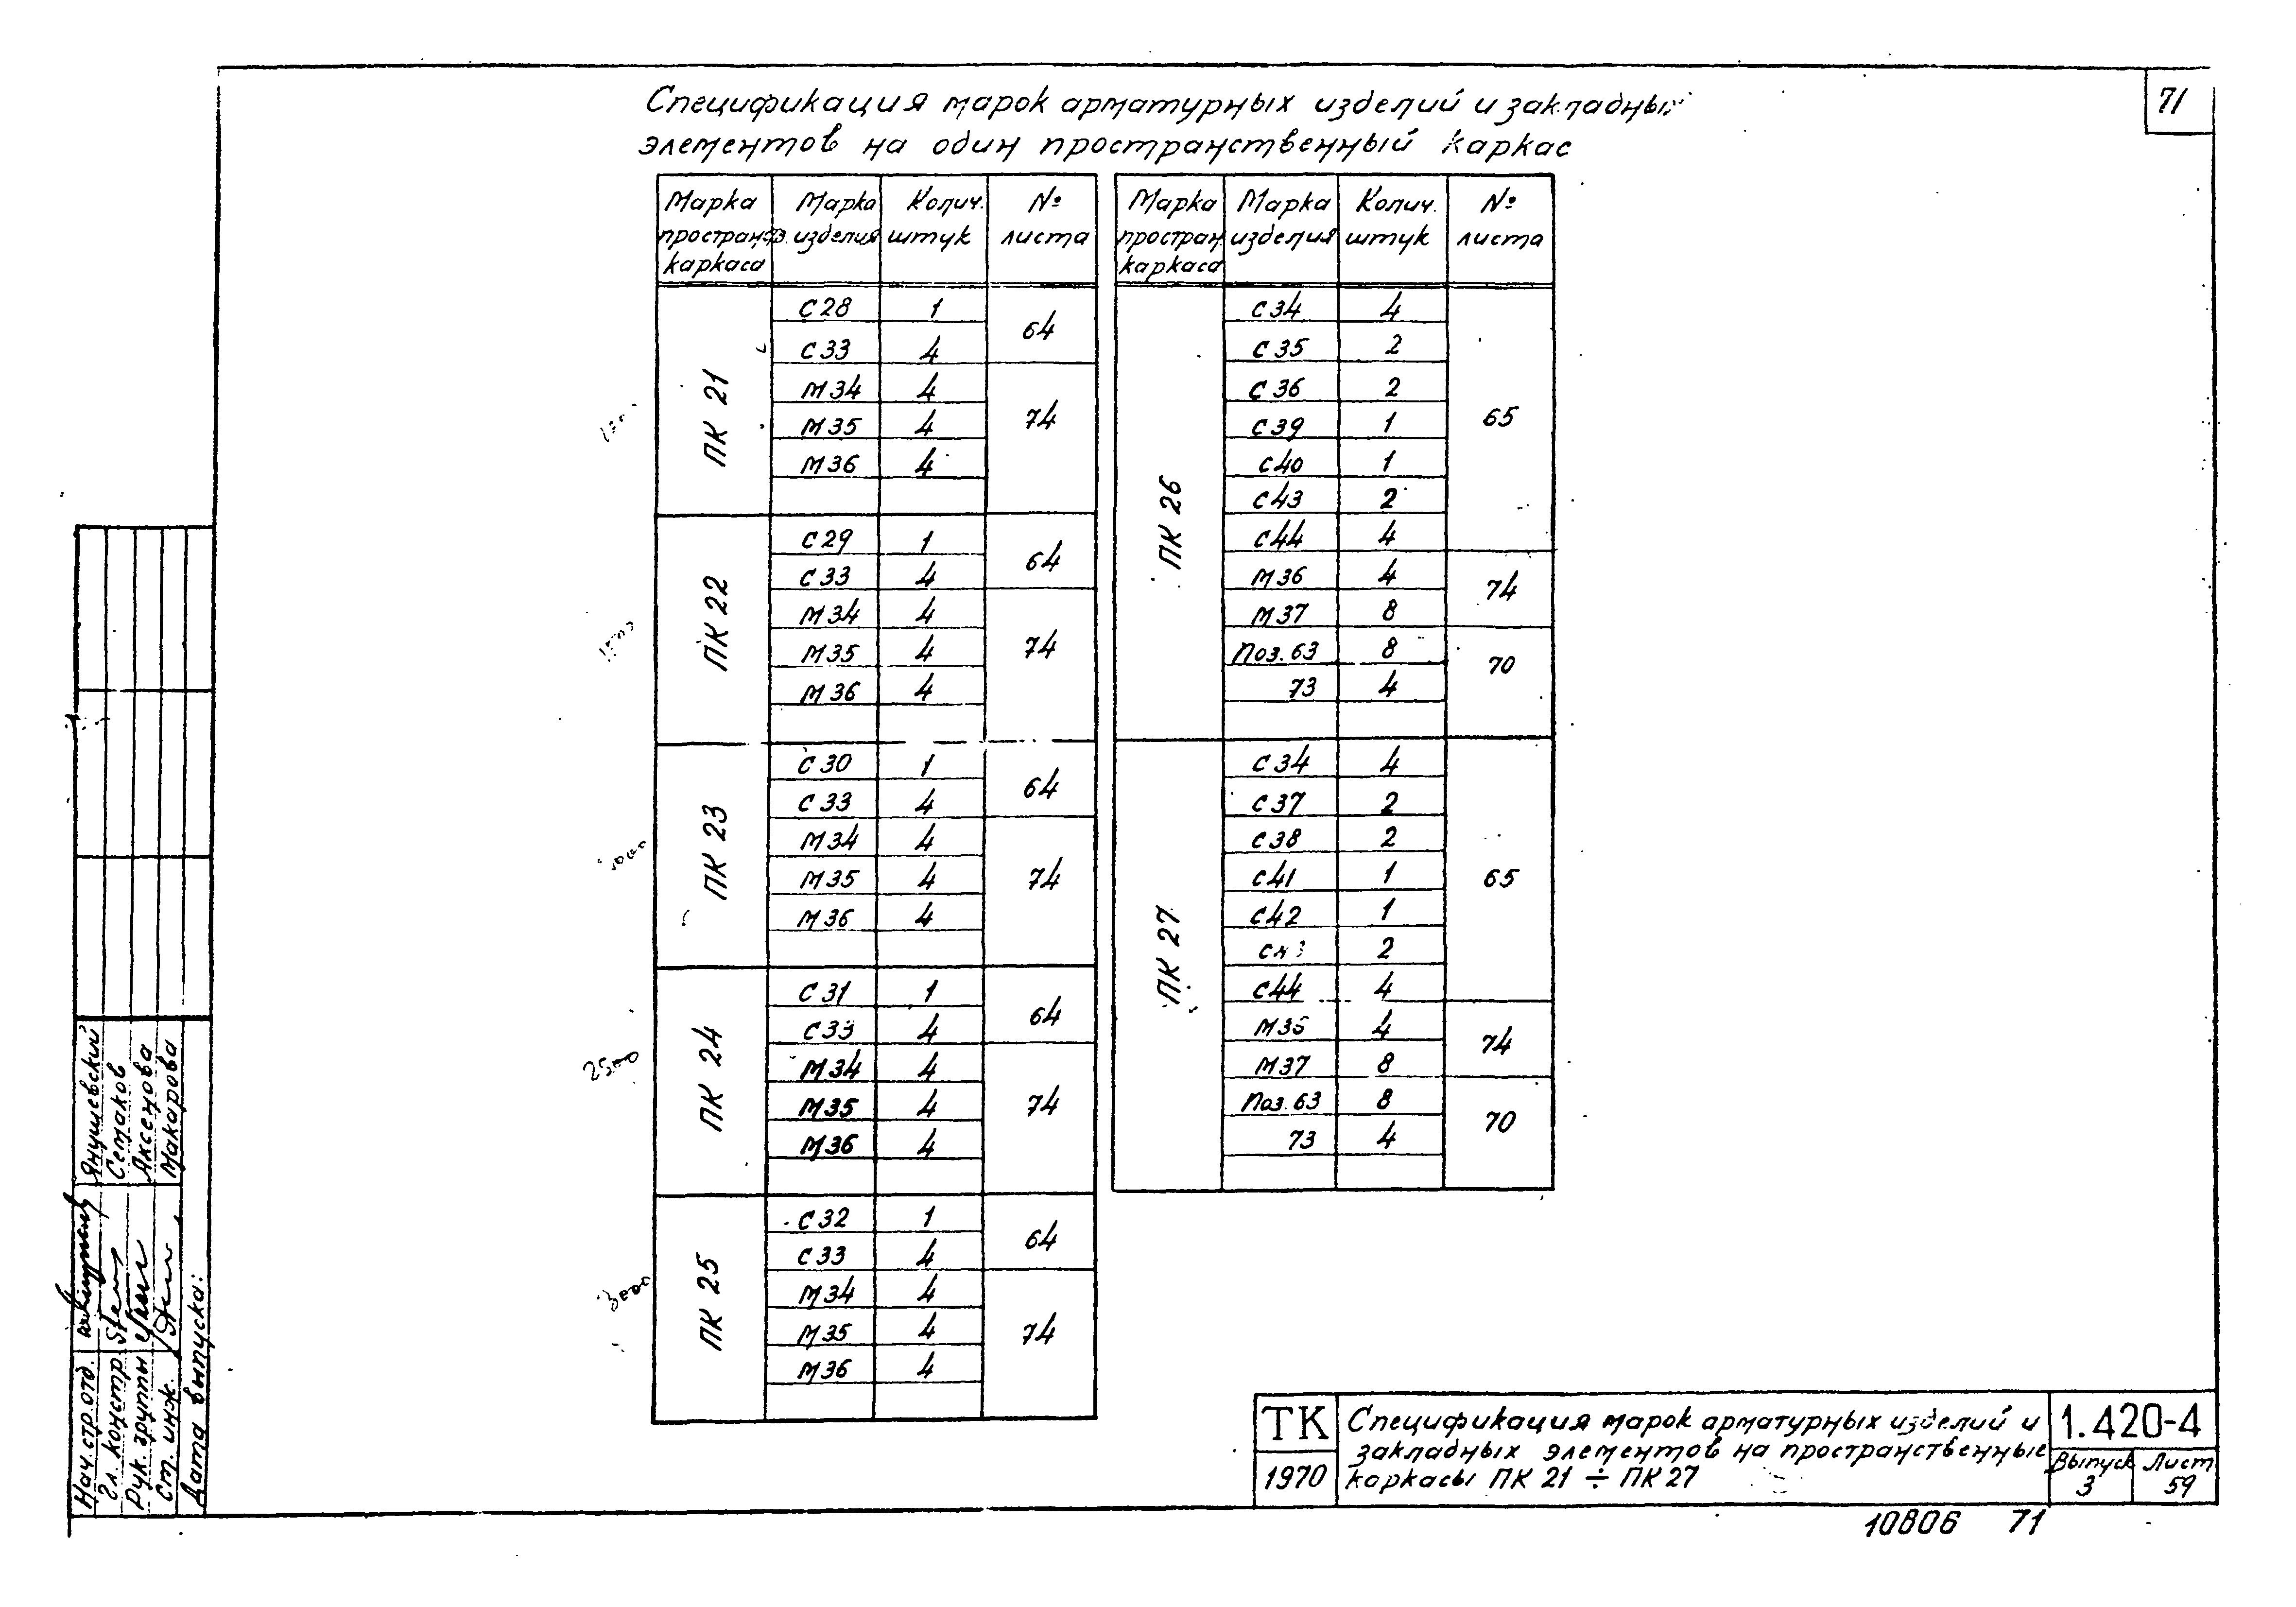 71
Спецификация марок арматурных изделий и закладны
элементов на один пространственный каркас
Марка простран. каркаса | Марка изделия | Колич. штук | № листа
ПК 21 | С 28 | 1 | 64
С 33 | 4
М 34 | 4 | 74
М 35 | 4
М 36 | 4
ПК 22 | С 29 | 1 | 64
С 33 | 4
М 34 | 4 | 74
М 35 | 4
М 36 | 4
ПК 23 | С 30 | 1 | 64
С 33 | 4
М 34 | 4 | 74
М 35 | 4
М 36 | 4
2500
ПК 24 | С 31 | 1 | 64
С 33 | 4
М 34 | 4 | 74
М 35 | 4
М 36 | 4
ПК 25 | С 32 | 1 | 64
С 33 | 4
М 34 | 4 | 74
М 35 | 4
М 36 | 4
Марка простран. каркаса | Марка изделия | Колич. штук | № листа
ПК 26 | С 34 | 4 | 65
С 35 | 2
С 36 | 2
С 39 | 1
С 40 | 1
С 43 | 2
С 44 | 4
М 36 | 4 | 74
М 37 | 8
Поз. 63 | 8 | 70
73 | 4
ПК 27 | С 34 | 4 | 65
С 37 | 2
С 38 | 2
С 41 | 1
С 42 | 1
2
С 44 | 4
4 | 74
М 37 | 8
Поз. 63 | 8 | 70
73 | 4
Нач. стр. отд. Янушевский
Гл. констр. Семаков
Рук. группы Аксенова
Ст. инж. Макарова
Дата выпуска:
ТК
1970
Спецификация марок арматурных изделий и
закладных элементов на пространственные
каркасы ПК 21 ÷ ПК 27
1.420-4
Выпуск 3
Лист 59
10806 71